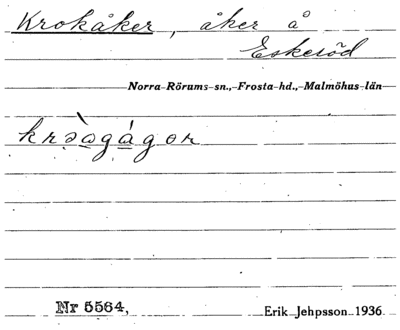 Krokåker, åker å
Eskeröd
Norra-Rörums-sn., Frosta-hd., Malmöhus län
Nr 5564,
Erik Jehpsson 1936